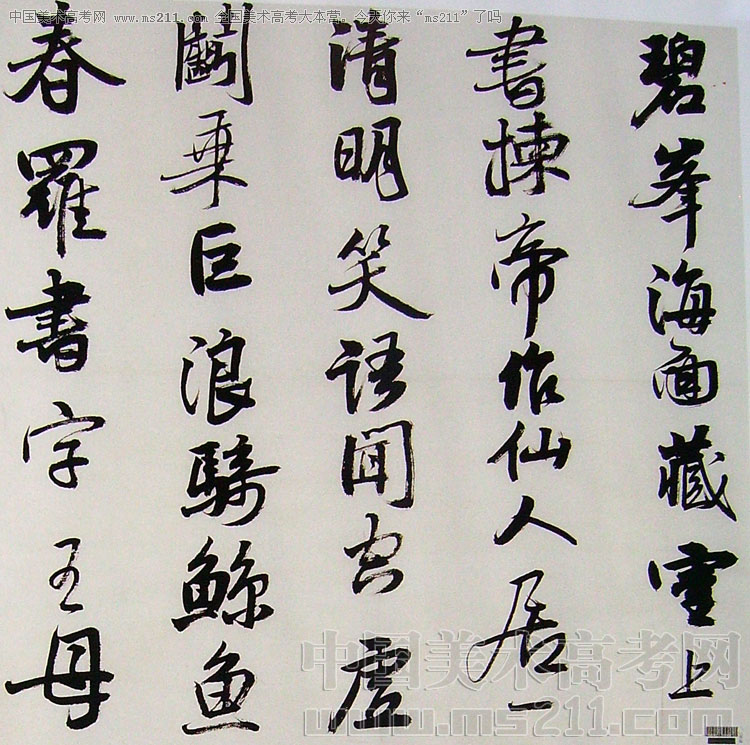 中国美术高考网 www.ms211.com 全国美术高考大本营。今天你来“ms211”了吗
碧峯海面藏靈上
書揀帝作仙人居一
清明笑語聞空虛
鬭乘巨浪騎鯨魚
春羅書字王母
中国美术高考网
www.ms211.com